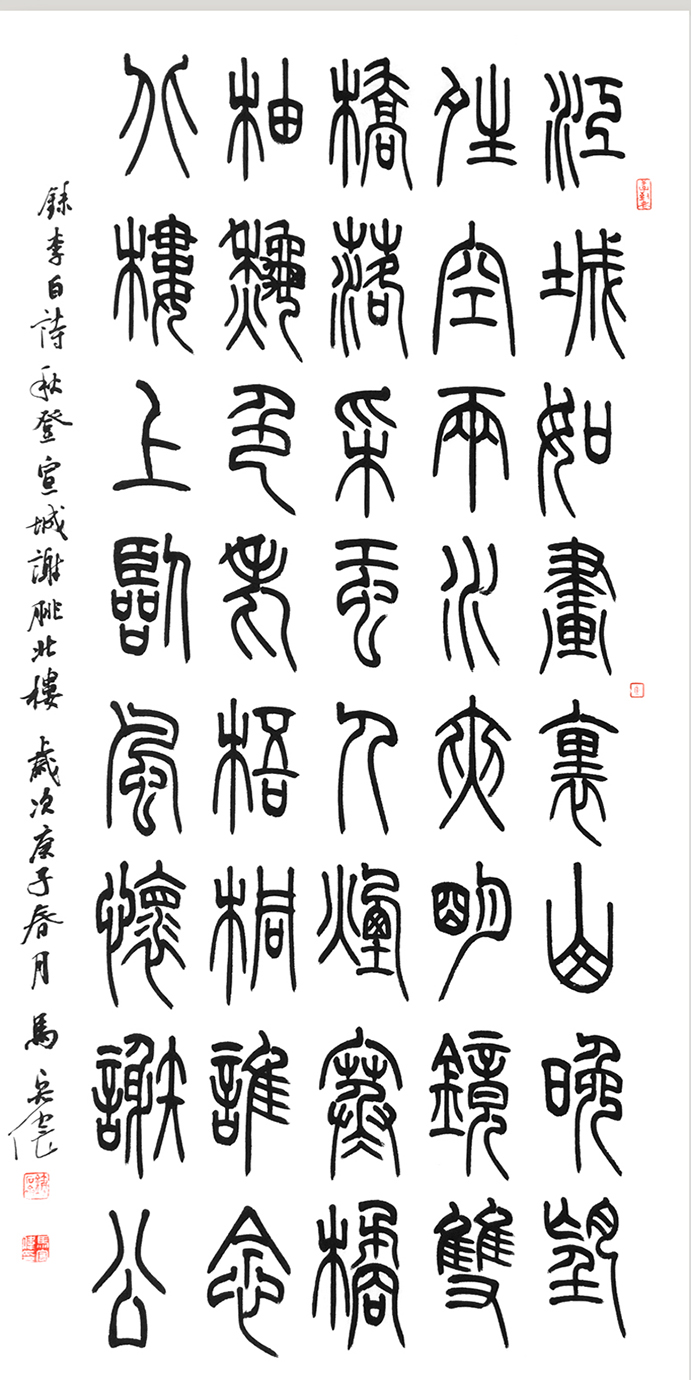 江城如畫裏山晚望
晴空兩水夾明鏡雙
橋落采虹人煙寒橘
柚秋色老梧桐誰念
北樓上臨風懷謝公
錄李白詩秋登宣城謝朓北樓 歲次庚子春月 馬